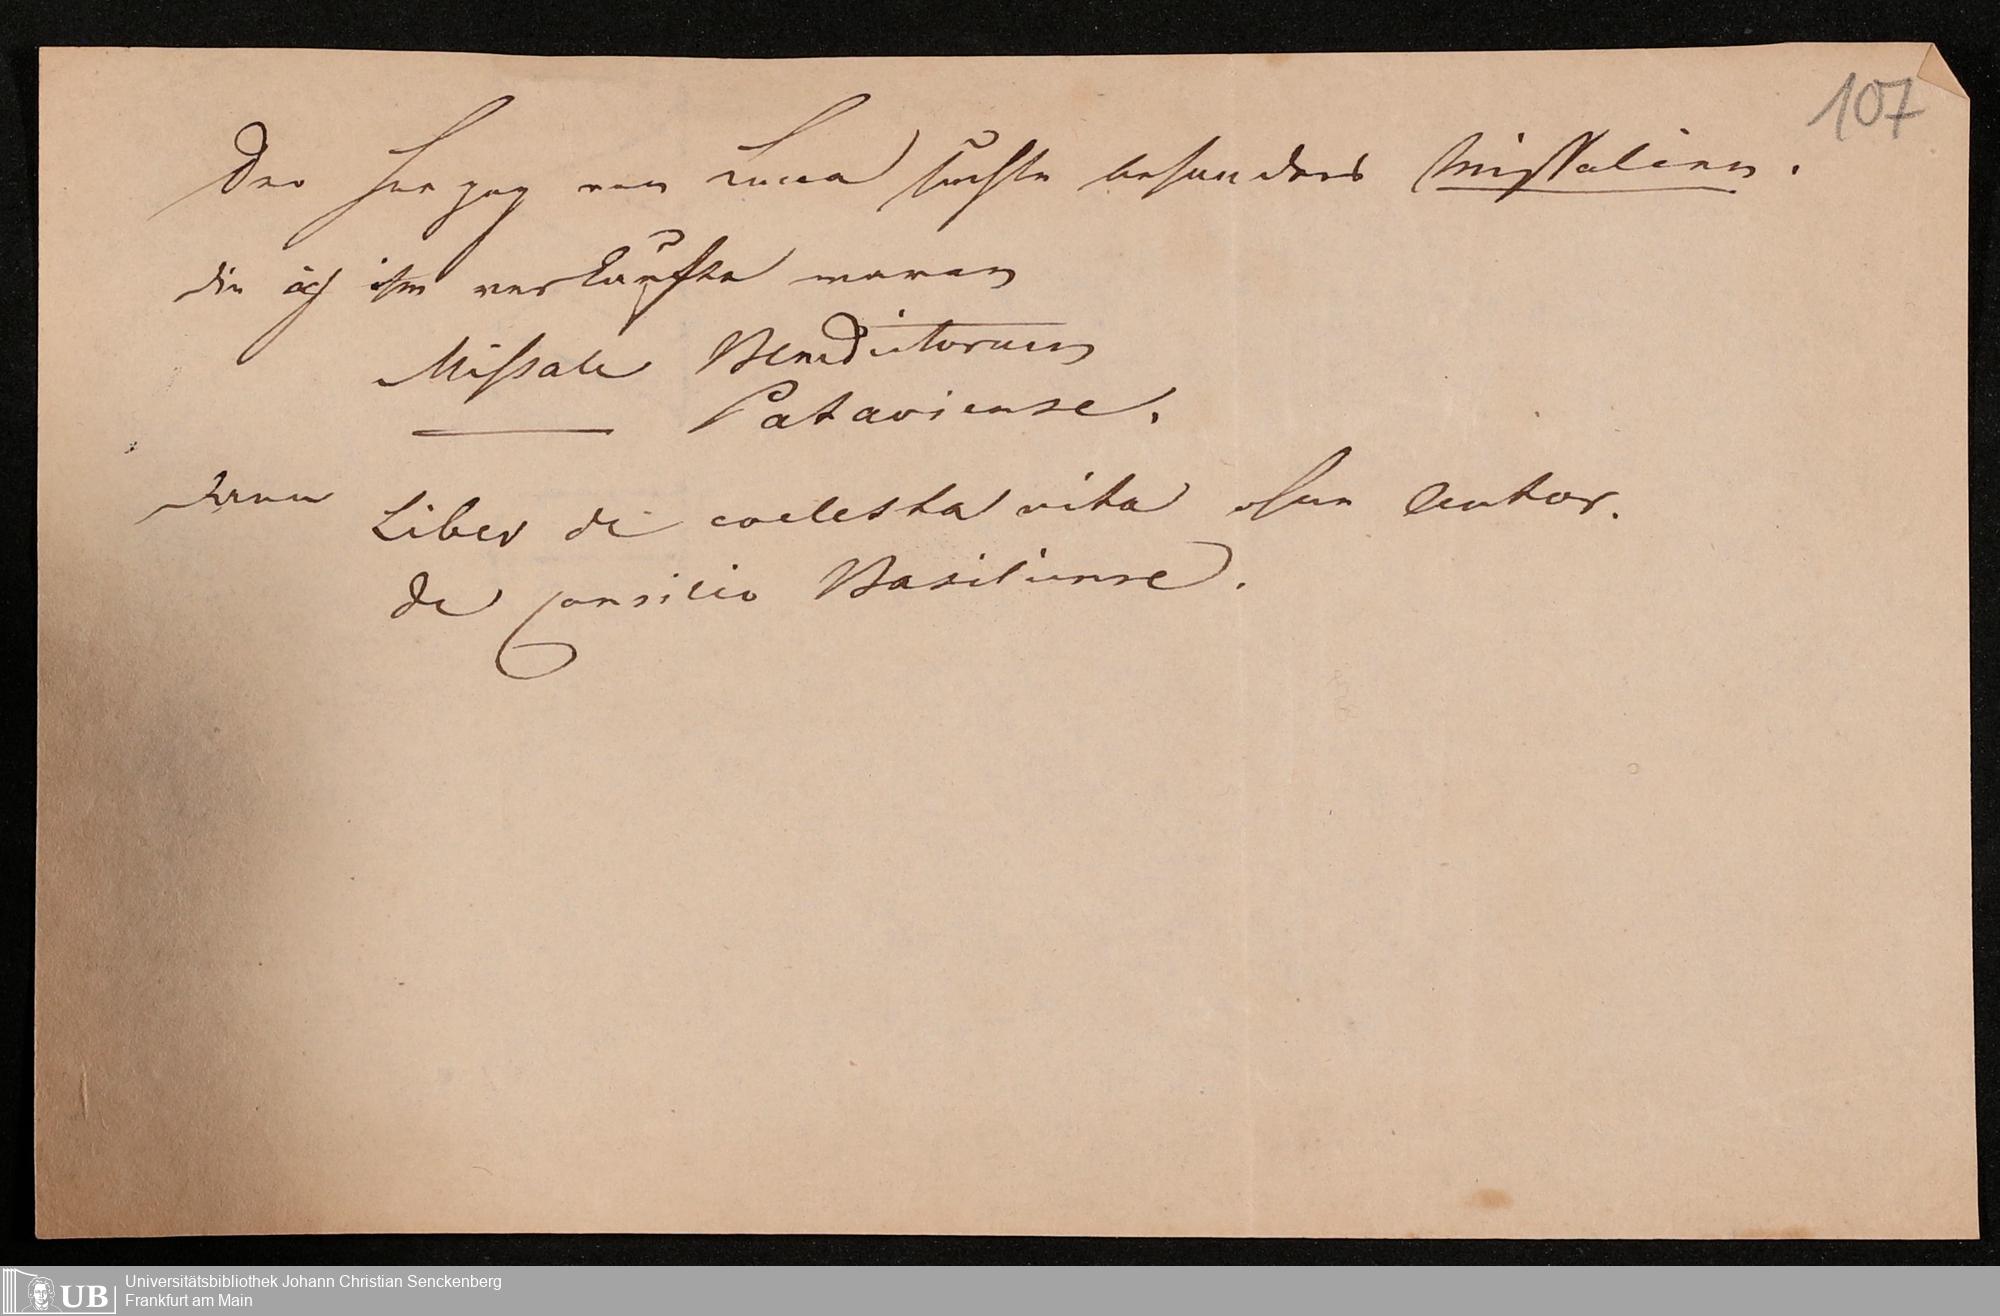 107
Der Herzog von Lucca suchte besonders Missalien.
die ich ihm verkaufte waren
Missale Benedictorum
Pataviense.
Ferner Liber de coelesta vita ohne Autor.
de Consilio Basiliense.
UB Universitätsbibliothek Johann Christian Senckenberg
Frankfurt am Main